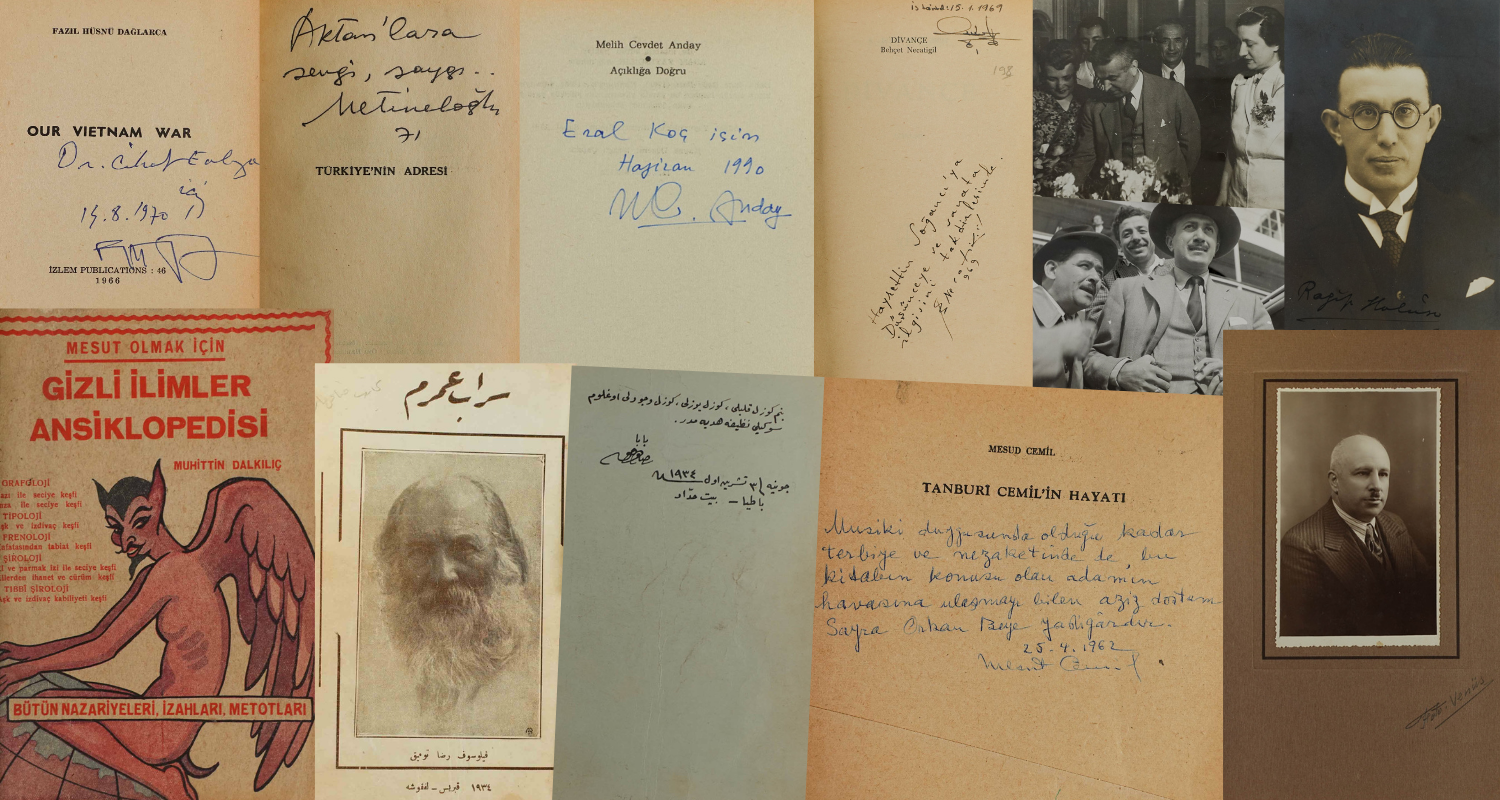 FAZIL HÜSNÜ DAĞLARCA
OUR VIETNAM WAR
Dr.
için
14.8.1970
İZLEM PUBLICATIONS : 46
1966
Aktan'lara
sevgi, saygı..
Metin Eloğlu
71
TÜRKİYE'NİN ADRESİ
Melih Cevdet Anday
Açıklığa Doğru
Eral Koç için
Haziran 1990
M C. Anday
İstanbul 15.1.1969
DİVANÇE
Behçet Necatigil
Hayrettin Soğancı'ya
Düşünceye ve sanata
ilgisini takdirlerimle.
B Necatigil
969
Ragıp Hulûsi
MESUT OLMAK İÇİN
GİZLİ İLİMLER
ANSİKLOPEDİSİ
MUHİTTİN DALKILIÇ
GRAFOLOJİ
ile seciye keşfi
ile seciye keşfi
TİPOLOJİ
ve izdivaç keşfi
FRENOLOJİ
tabiat keşfi
ŞİROLOJİ
ve parmak izi ile seciye keşfi
ihanet ve cürüm keşfi
TIBBİ ŞİROLOJİ
ve izdivaç kabiliyeti keşfi
BÜTÜN NAZARİYELERİ, İZAHLARI, METOTLARI
سراب عمرم
فیلسوف رضا توفیق
١٩٣٤ قبریس ـ لفقوشه
بنم كوزل قلبلی، كوزل یوزلی، كوزل وجودلی اوغلوم
سوكیلی نظیفه هدیه مدر.
بابا
جونیه ٣١ تشرین اول ١٩٣٤
باطیا ـ بیت حداد
MESUD CEMİL
TANBURİ CEMİL'İN HAYATI
Musiki duygusunda olduğu kadar
terbiye ve nezaketinde de, bu
kitabın konusu olan adamın
havasına ulaşmayı bilen aziz dostum
Sayra Orhan Beye yadigârdır.
25.4.1962
Mesut Cemil
Foto. Venüs